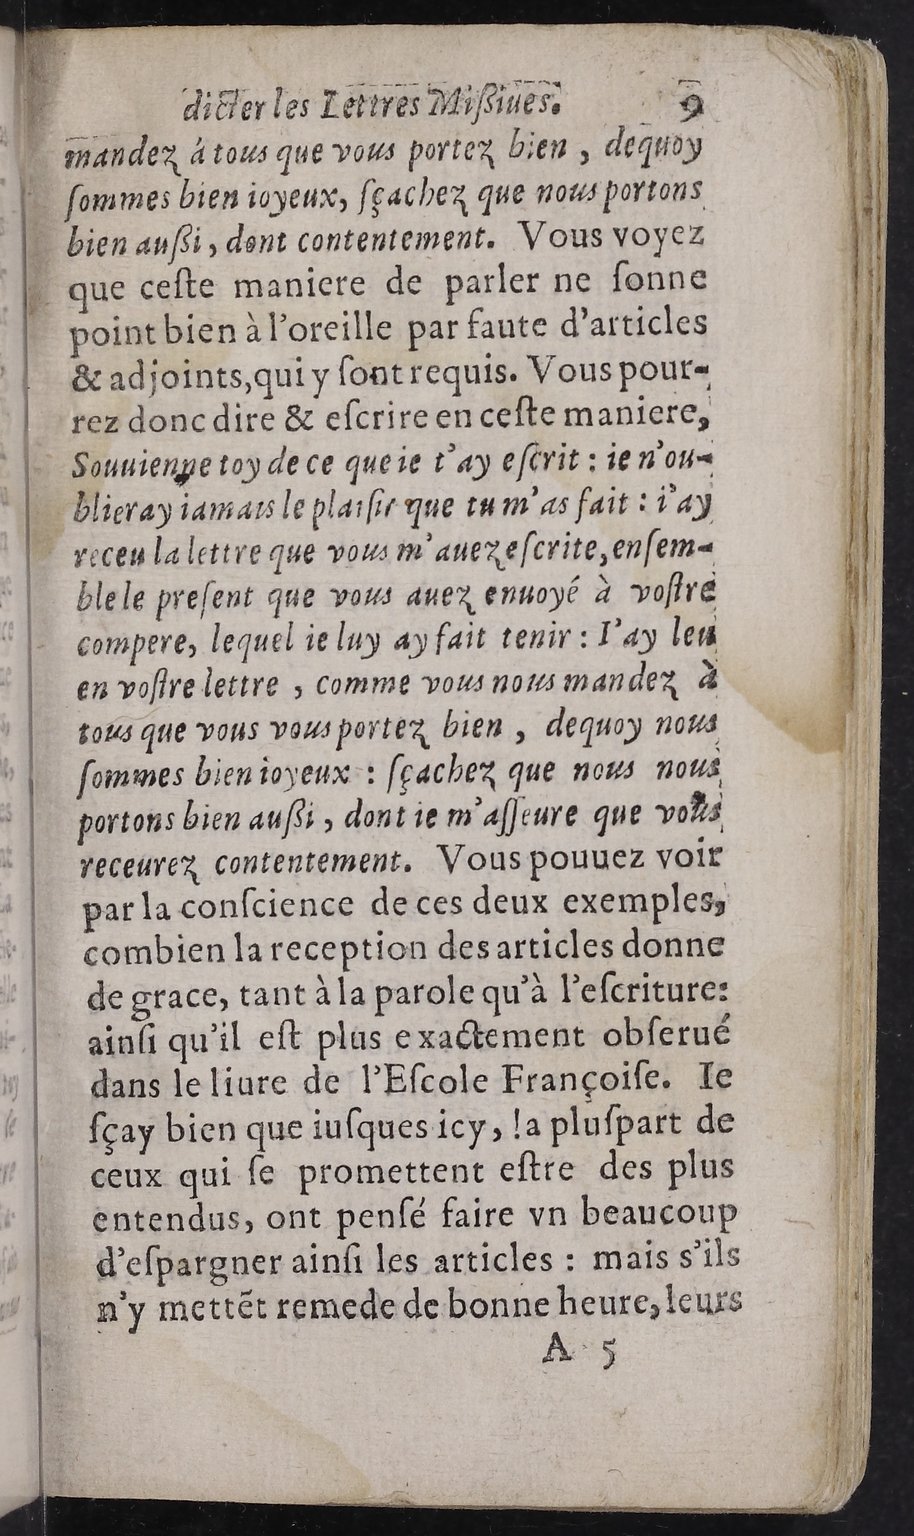 dicter les Lettres Mißiues. 9
mandez à tous que vous portez bien , dequoy
ſommes bien ioyeux, ſçachez que nous portons
bien außi, dont contentement. Vous voyez
que ceſte maniere de parler ne ſonne
point bien à l'oreille par faute d'articles
& adjoints, qui y ſont requis. Vous pour-
rez donc dire & eſcrire en ceſte maniere,
Souuienne toy de ce que ie t'ay eſcrit : ie n'ou-
blieray iamais le plaiſir que tu m'as fait : i'ay
receu la lettre que vous m'auez eſcrite, enſem-
ble le preſent que vous auez enuoyé à voſtre
compere, lequel ie luy ay fait tenir : I'ay leu
en voſtre lettre , comme vous nous mandez à
tous que vous vous portez bien , dequoy nous
ſommes bien ioyeux : ſçachez que nous nous
portons bien außi , dont ie m'aſſeure que vous
receurez contentement. Vous pouuez voir
par la conſcience de ces deux exemples,
combien la reception des articles donne
de grace, tant à la parole qu'à l'eſcriture:
ainſi qu'il eſt plus exactement obſerué
dans le liure de l'Eſcole Françoiſe. Ie
ſçay bien que iuſques icy, la pluſpart de
ceux qui ſe promettent eſtre des plus
entendus, ont penſé faire vn beaucoup
d'eſpargner ainſi les articles : mais s'ils
n'y mettẽt remede de bonne heure, leurs
A 5